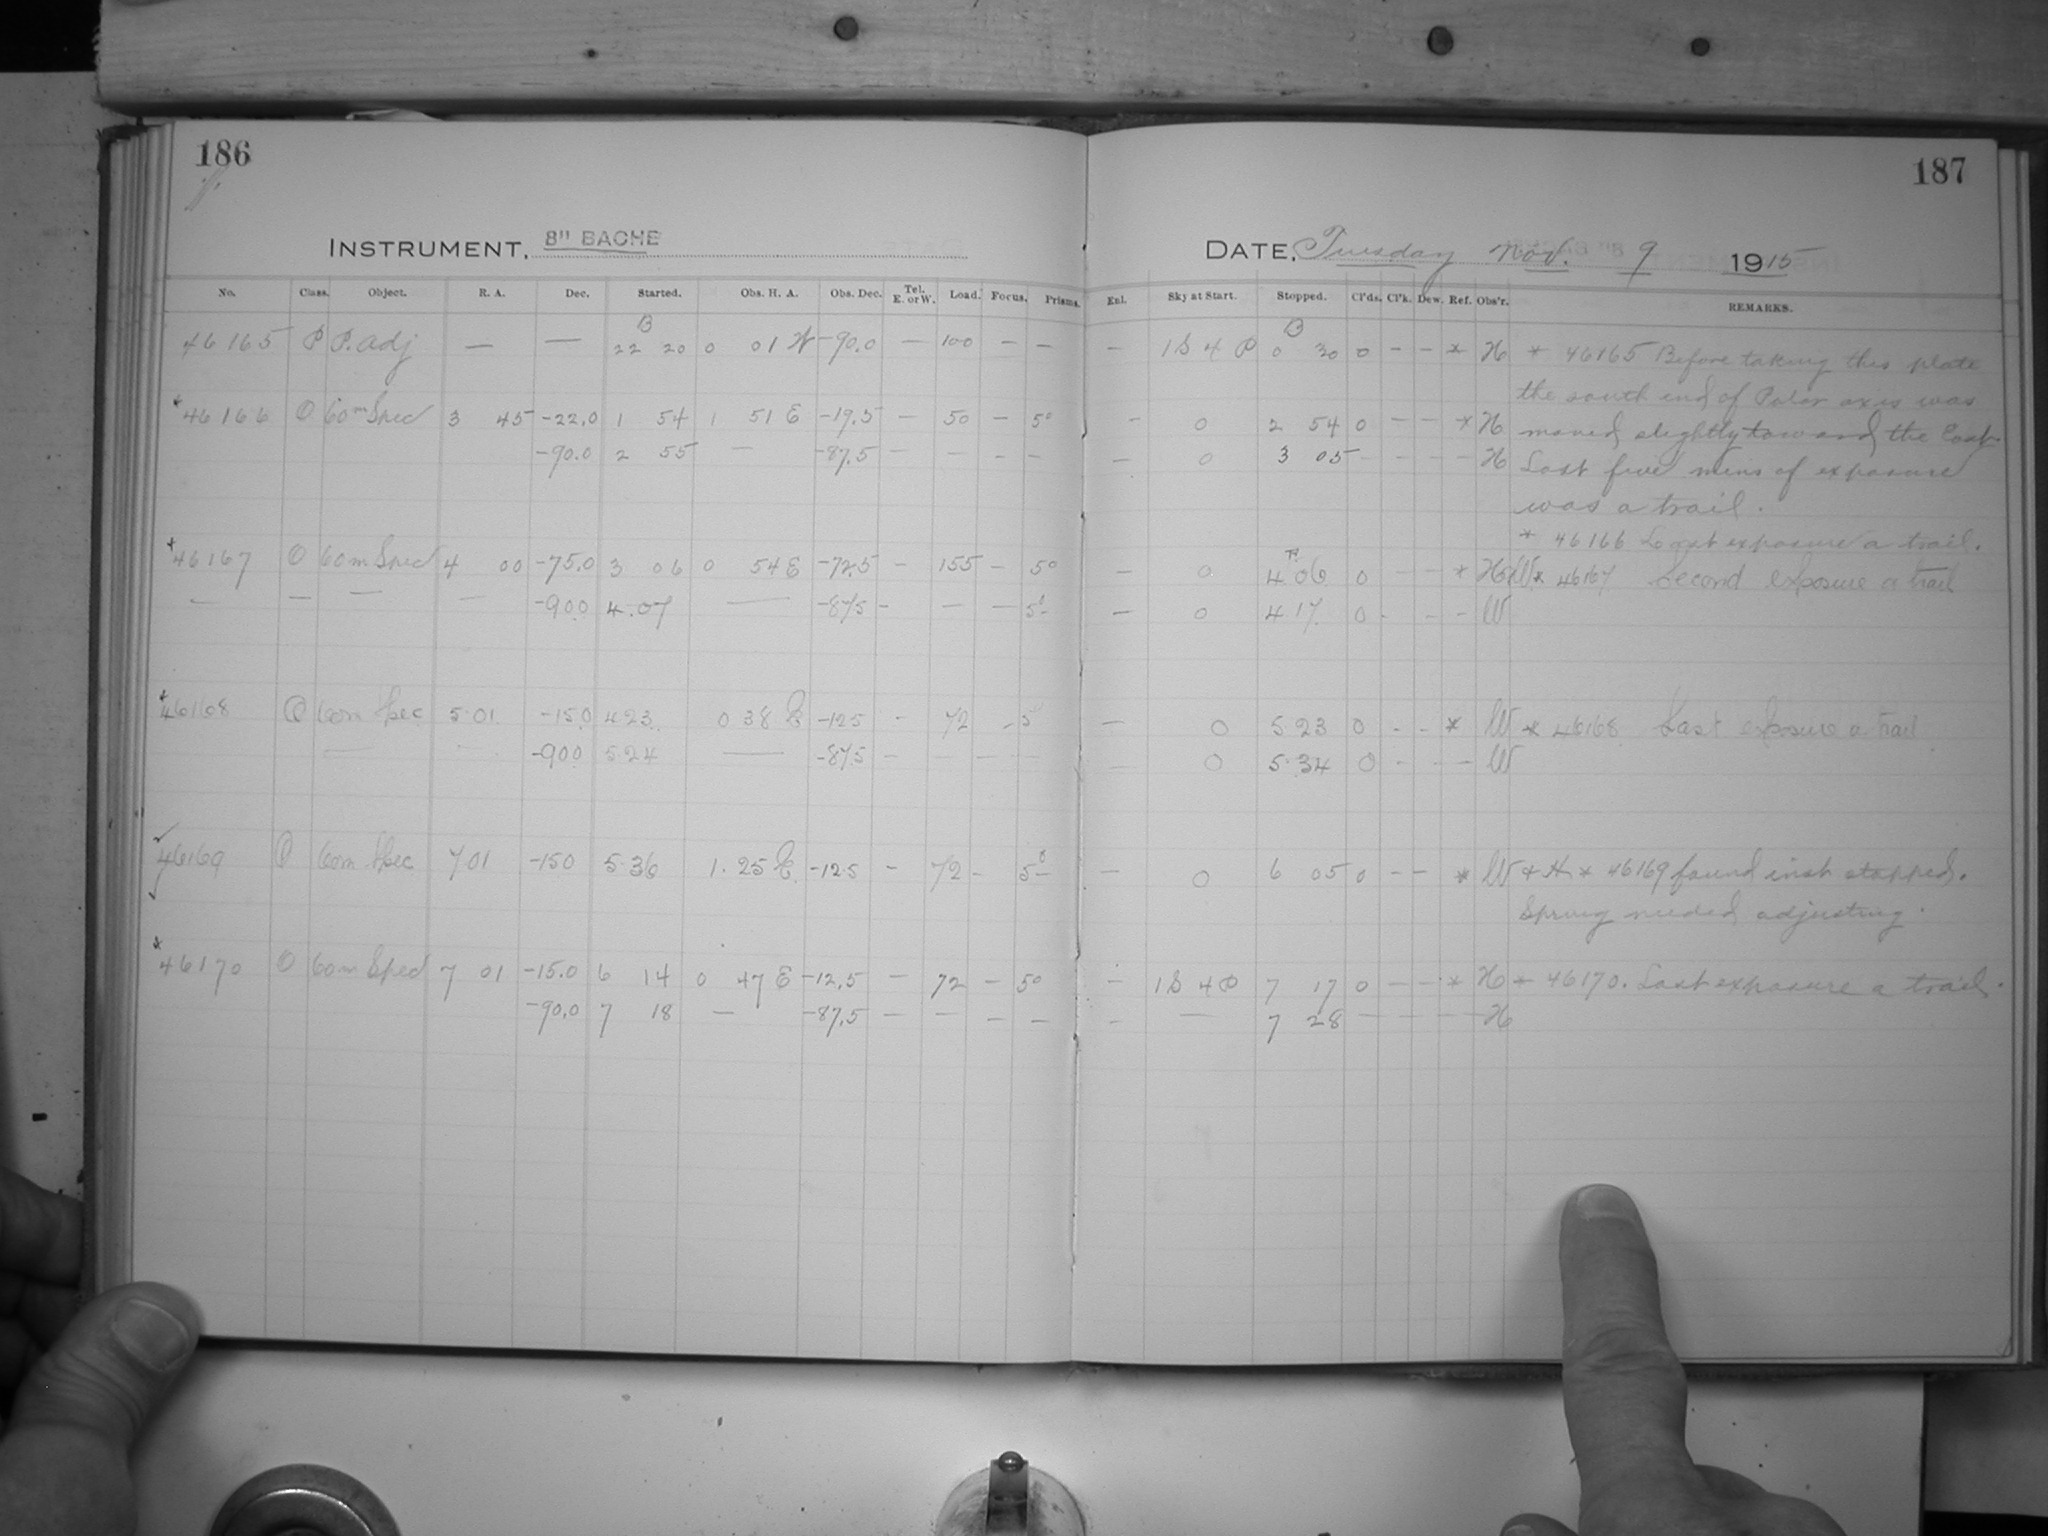 186
187
INSTRUMENT, 8" BACHE
DATE, Tuesday Nov. 9 1915
No. Class. Object. R. A. Dec. Started. Obs. H. A. Obs. Dec. Tel. E. or W. Load. Focus. Prisms. Enl. Sky at Start. Stopped. Cl'ds. Cl'k. Dew. Ref. Obs'r. REMARKS.
B B
46165 P P. adj — — 22 20 0 01 W -90.0 — 100 — — — 1S 4 P 0 30 0 - - * H * 46165 Before taking this plate
the south end of Polar axis was
*46166 O 60m Spec 3 45 -22.0 1 54 1 51 E -19.5 — 50 — 5° — 0 2 54 0 - - * H moved slightly toward the East.
-90.0 2 55 — -87.5 — — — — — 0 3 05 - - - - H Last five mins of exposure
was a trail.
* 46166 Last exposure a trail.
*46167 O 60m Spec 4 00 -75.0 3 06 0 54 E -72.5 — 155 — 5° — 0 4 06 0 - - * H&W * 46167 Second exposure a trail
— — — — -900 4.07 — -875 - — — 5° — 0 4 17. 0 - - - W
*46168 O 60m Spec 5.01. -150 423 0 38 E -125 - 72 - 5° — 0 5 23 0 - - * W * 46168 Last exposure a trail
— — -900 5.24 — -875 - - - - — 0 5.34 0 - - - W
46169 O 60m Spec 7 01 -150 5.36 1.25 E -12.5 - 72 - 5° — 0 6 05 0 - - * W & H * 46169 found inst stopped.
Spring needed adjusting.
*46170 O 60m Spec 7 01 -15.0 6 14 0 47 E -12.5 — 72 — 5° — 1S 4 P 7 17 0 - - * H * 46170. Last exposure a trail.
-90.0 7 18 — -87.5 — — — — - — 7 28 - - - - H